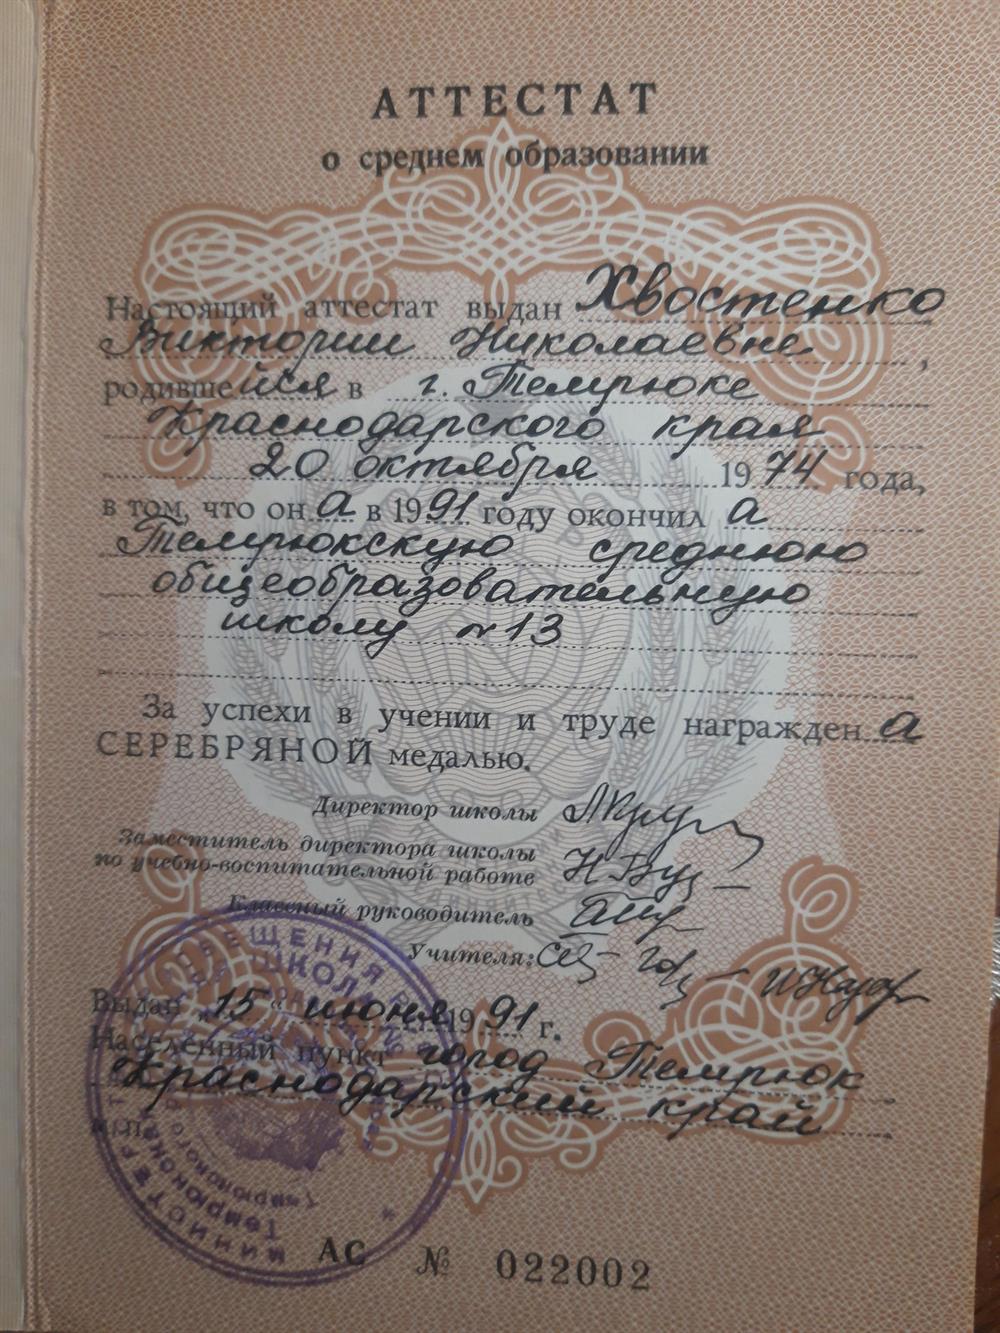 АТТЕСТАТ
о среднем образовании
Настоящий аттестат выдан Хвостенко
Виктории Николаевне,
родившейся в г. Темрюке
Краснодарского края
20 октября 1974 года,
в том, что он а в 1991 году окончил а
Темрюкскую среднюю
общеобразовательную
школу № 13
За успехи в учении и труде награжден а
СЕРЕБРЯНОЙ медалью.
Директор школы
Заместитель директора школы
по учебно-воспитательной работе
Классный руководитель
Учителя:
Выдан „15“ июня 1991 г.
Населённый пункт город Темрюк
Краснодарский край
М.П.
АС № 022002